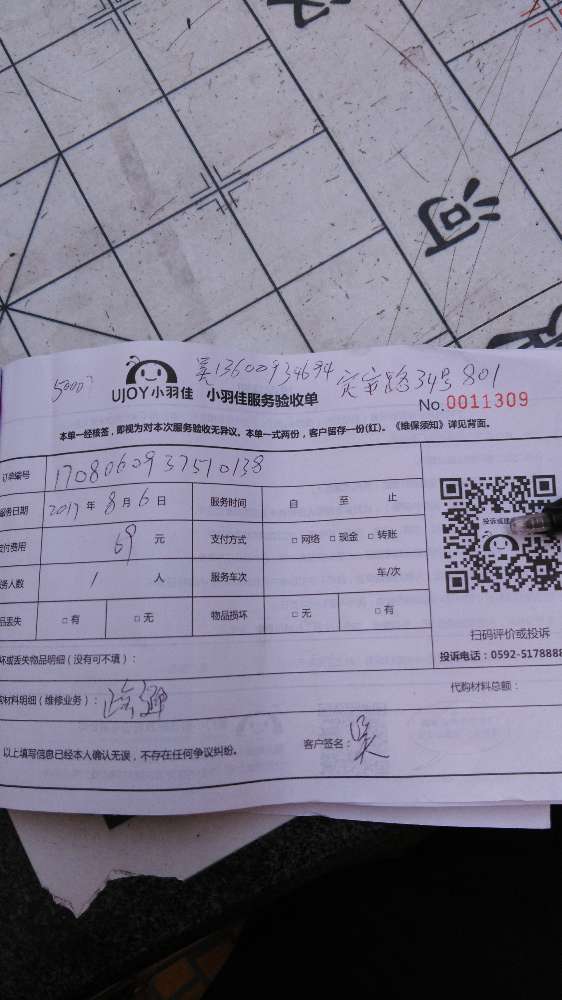 河
吴13600934694 定安路34号801
UJOY小羽佳 小羽佳服务验收单
No.0011309
本单一经核签，即视为对本次服务验收无异议。本单一式两份，客户留存一份(红)。《维保须知》详见背面。
订单编号 1708060937510138
服务日期 2017年8月6日 服务时间 自 至 止
支付费用 69 元 支付方式 □网络 □现金 □转账
务人数 1 人 服务车次 车/次
品丢失 □有 □无 物品损坏 □无 □有
扫码评价或投诉
投诉电话：0592-5178888
坏或丢失物品明细（没有可不填）：
材料明细（维修业务）： 代购材料总额：
以上填写信息已经本人确认无误，不存在任何争议纠纷。 客户签名：吴